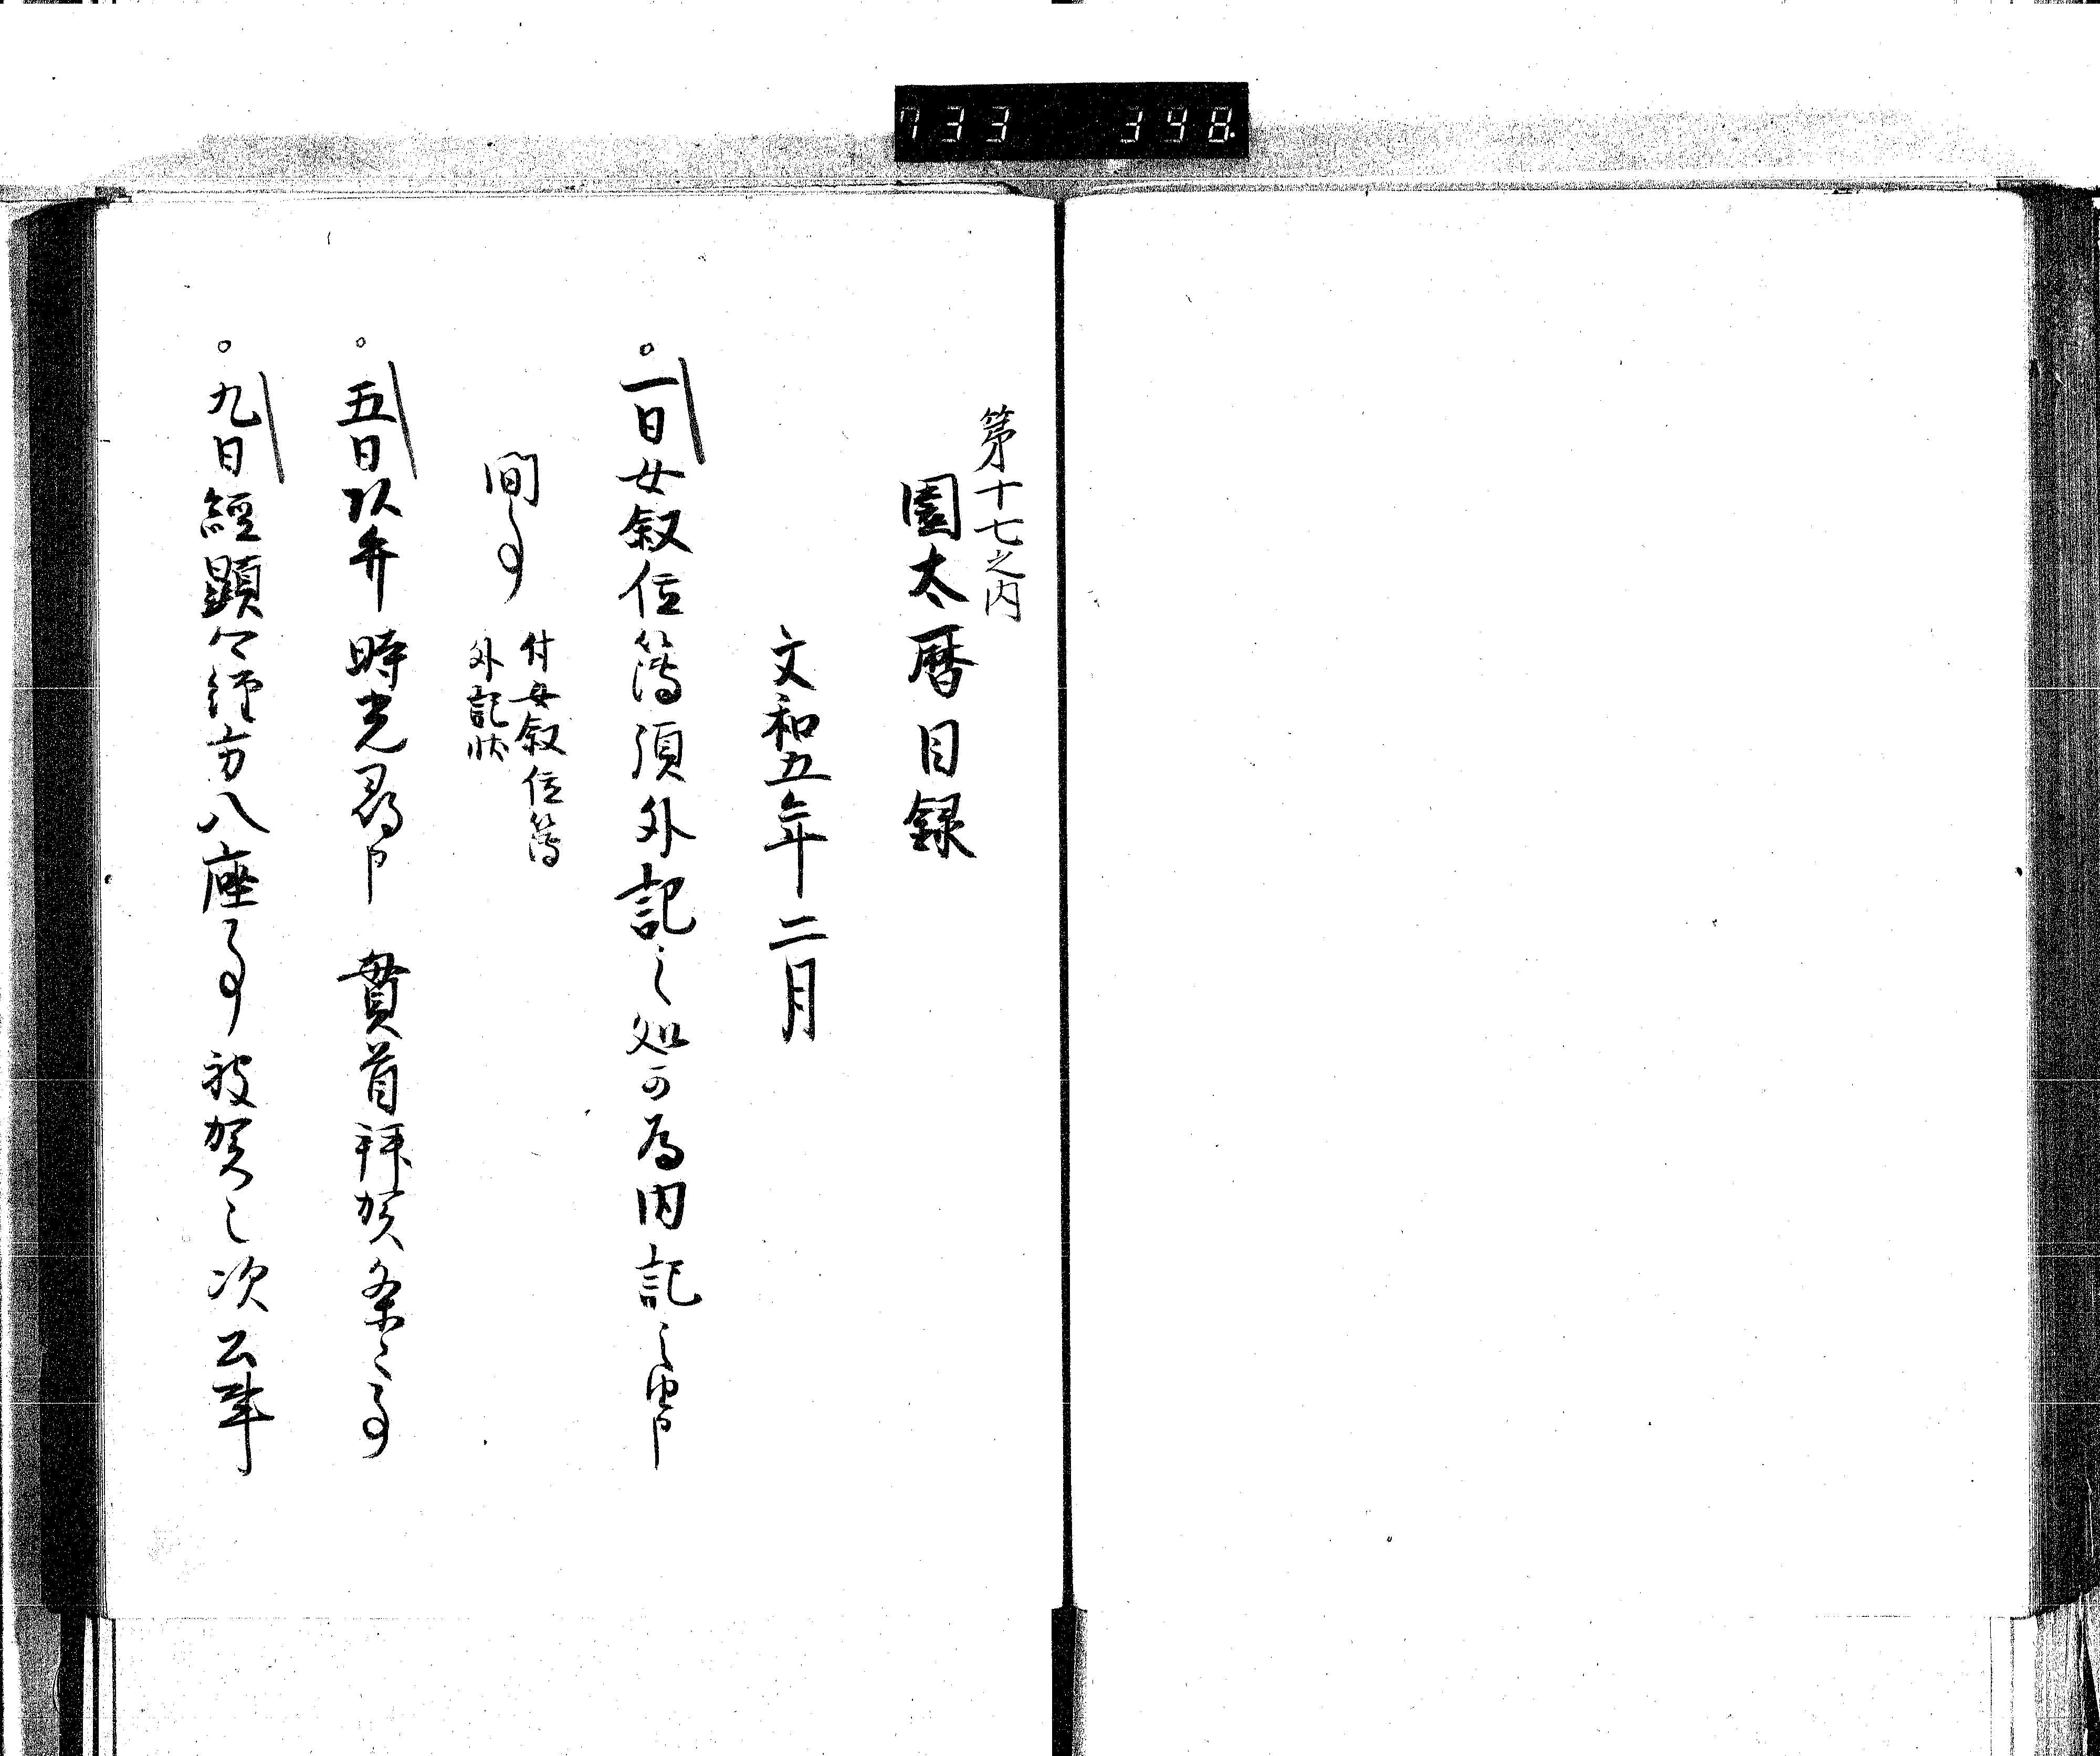 733 398
第十七之内
園太暦目録
文和五年二月
一日女叙位簿須外記之処可為内記之由申
間事
付女叙位簿
外記状
五日以弁時光尋申 貫首拝賀条々事
九日経顕卿経方八座事被賀之次公事